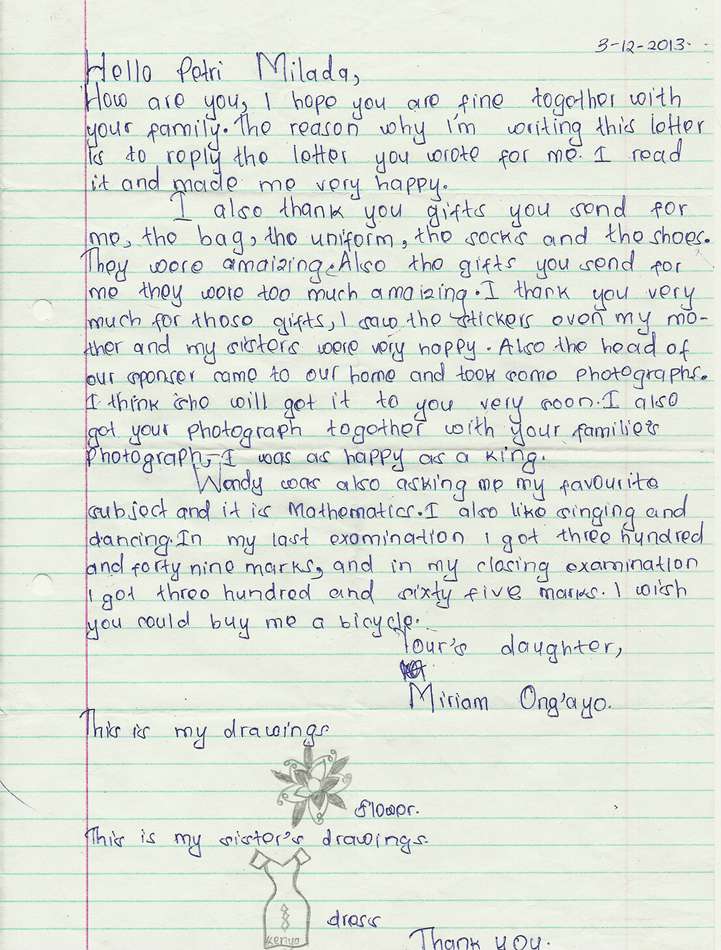 3-12-2013.
Hello Petri Milada,
How are you, I hope you are fine together with
your family. The reason why I'm writing this letter
is to reply the letter you wrote for me. I read
it and made me very happy.
I also thank you gifts you send for
me, the bag, the uniform, the socks and the shoes.
They were amaizing. Also the gifts you send for
me they were too much amaizing. I thank you very
much for those gifts, I saw the stickers even my mo-
ther and my sisters were very happy. Also the head of
our sponser came to our home and took some photographs.
I think she will get it to you very soon. I also
got your photograph together with your familie's
photograph, I was as happy as a king.
Wendy was also asking me my favourite
subject and it is Mathematics. I also like singing and
dancing. In my last examination I got three hundred
and forty nine marks, and in my closing examination
I got three hundred and sixty five marks. I wish
you could buy me a bicycle.
Your's daughter,
Miriam Ong'ayo.
This is my drawings
flower.
This is my sister's drawings.
dress
Kenya
Thank you.